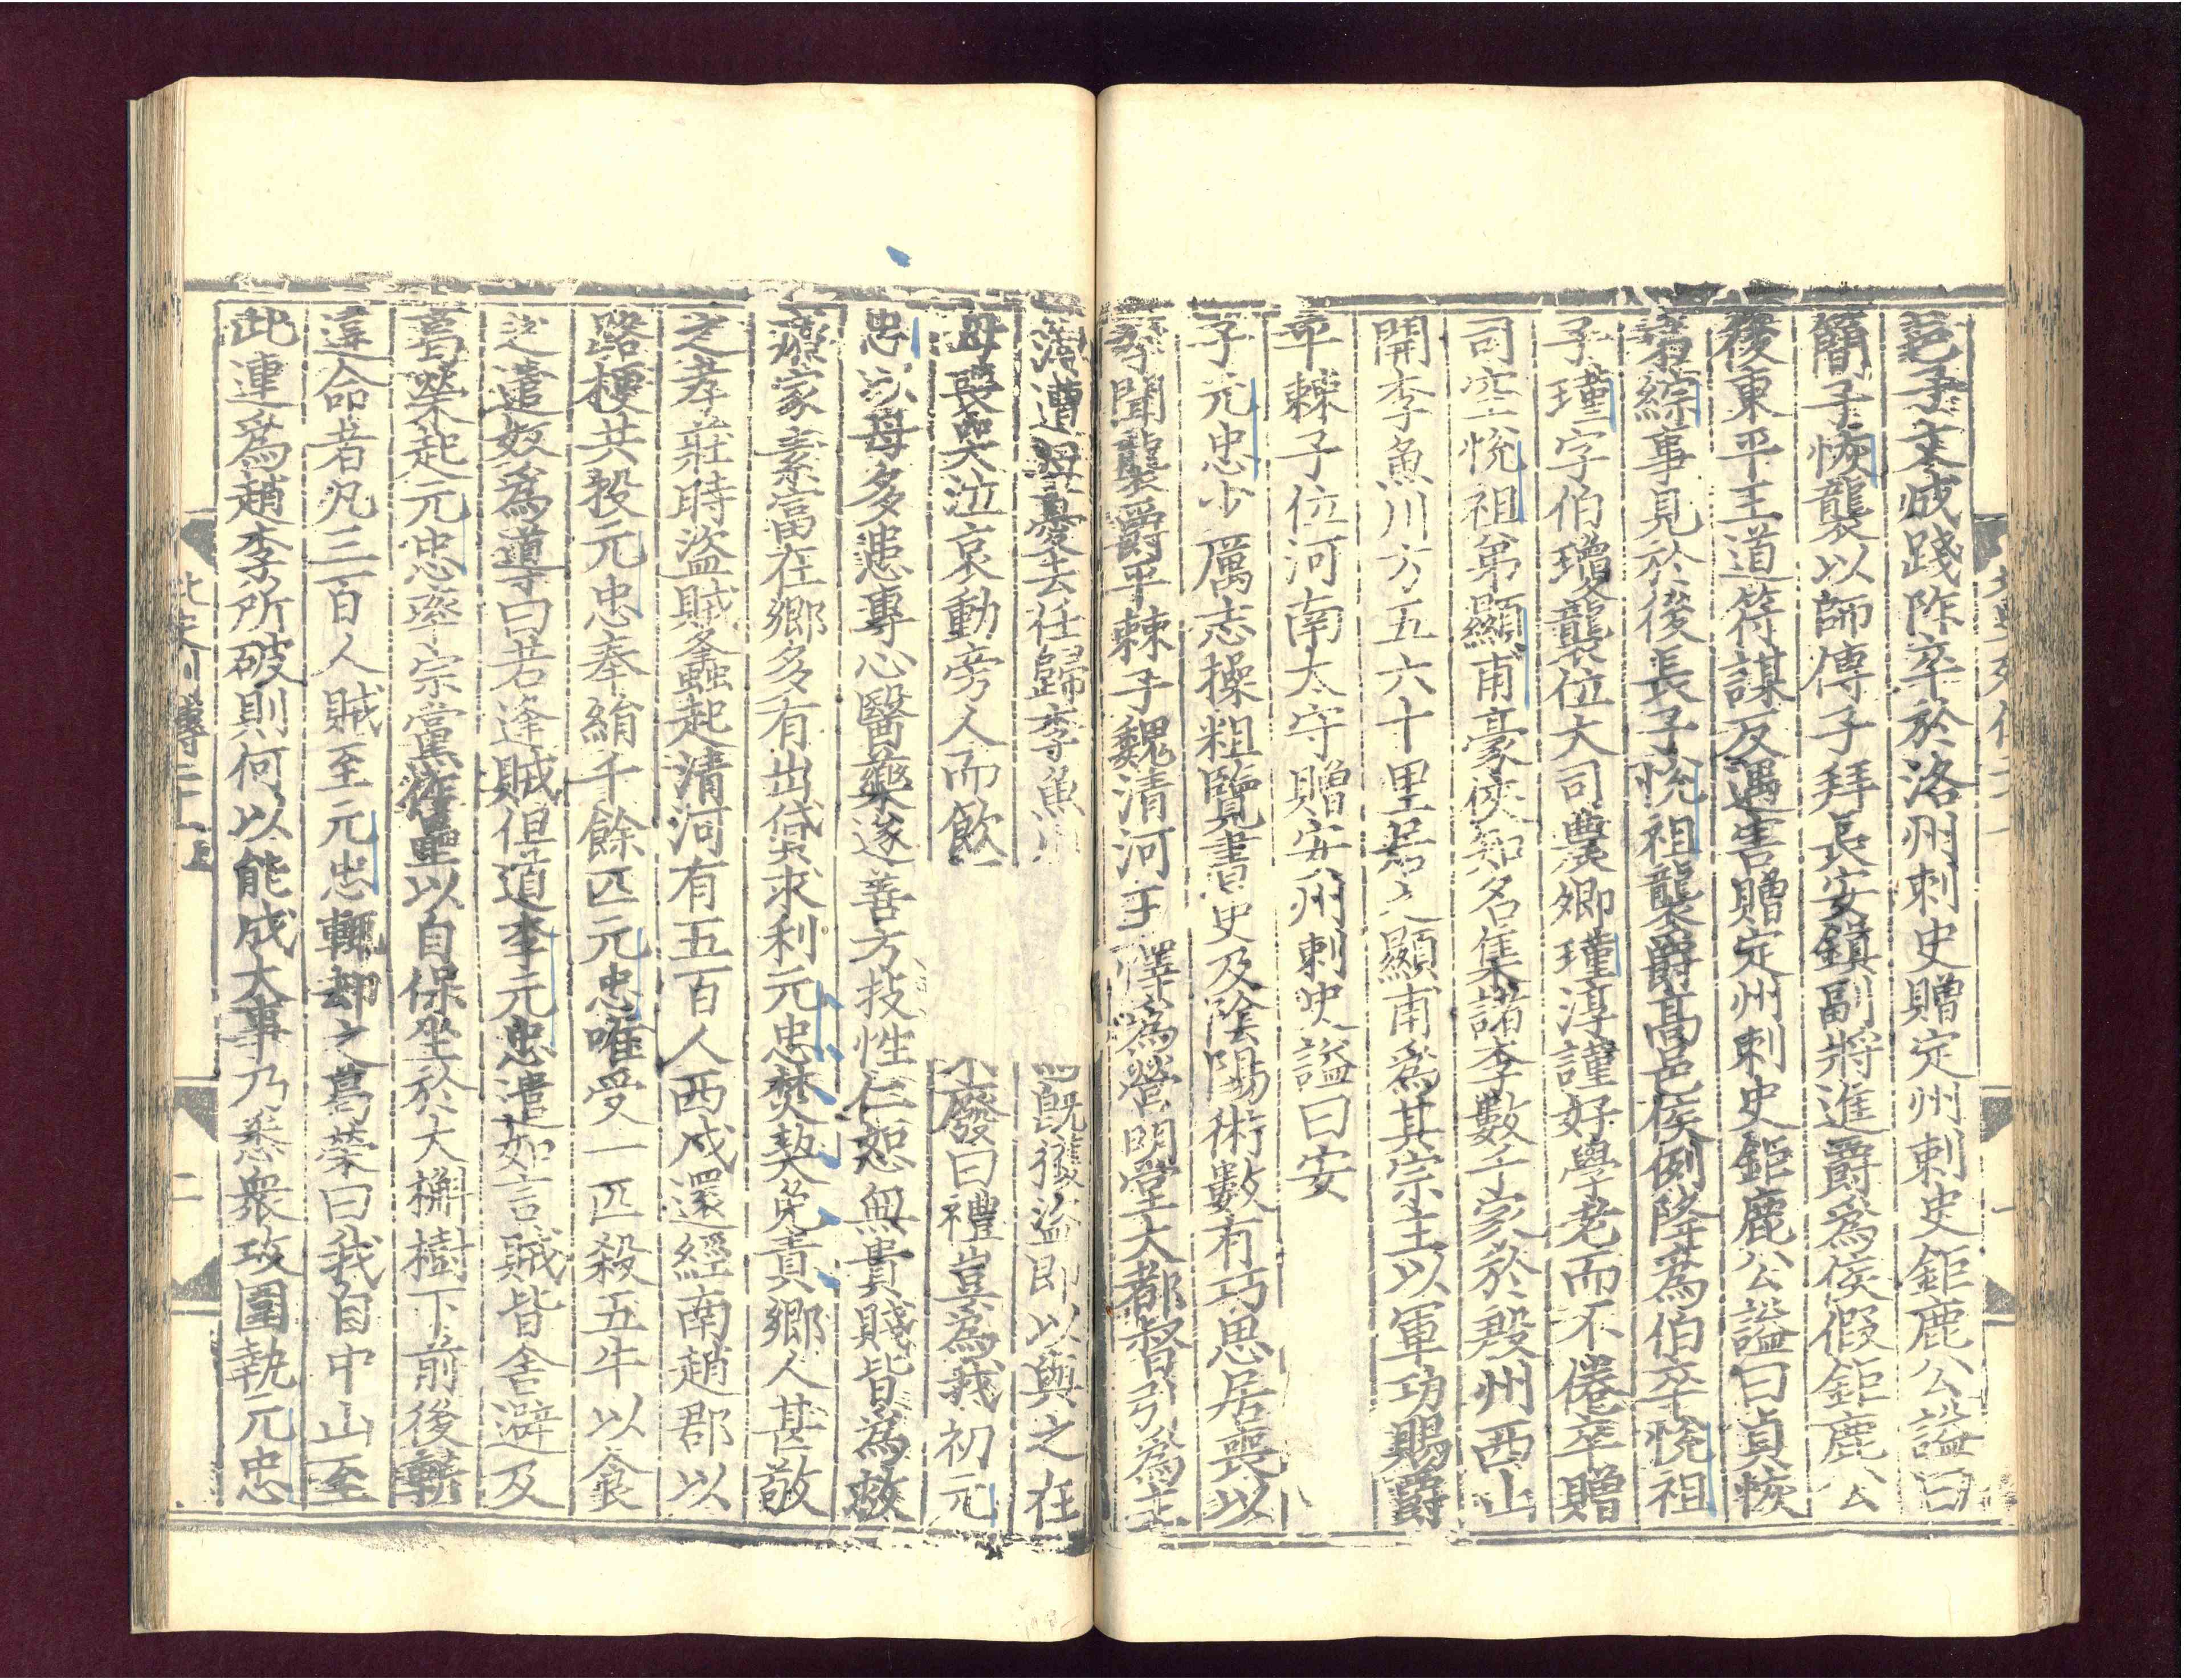 邑子文成踐阼卒於洛州刺史贈定州刺史鉅鹿公謚曰
簡子恢襲以師傅子拜長安鎮副將進爵爲侯假鉅鹿公
後東平王道符謀反遇害贈定州刺史鉅鹿公謚曰貞恢
弟綜事見於後長子悅祖襲爵高邑侯例降爲伯卒悅祖
子瑾字伯瓊襲位大司農卿瑾淳謹好學老而不倦卒贈
司空悅祖弟顯甫豪俠知名集諸李數千家於殷州西山
開李魚川方五六十里居之顯甫爲其宗主以軍功賜爵
平棘子位河南太守贈安州刺史謚曰安
子元忠少厲志操粗覽書史及陰陽術數有巧思居喪以
孝聞襲爵平棘子魏清河王懌爲營明堂大都督引爲主
簿遭母憂去任歸李魚川 既獲盜即以與之在
母喪哭泣哀動旁人而飲 不廢曰禮豈爲我初元
忠以母多患專心醫藥遂善方技性仁恕無貴賤皆爲救
療家素富在鄉多有出貸求利元忠焚契免責鄉人甚敬
之孝莊時盜賊蠭起清河有五百人西戍還經南趙郡以
路梗共投元忠奉絹千餘匹元忠唯受一匹殺五牛以食
之遣奴爲導曰若逢賊但道李元忠遣如言賊皆舍避及
葛榮起元忠率宗黨作壘以自保坐於大槲樹下前後斬
違命者凡三百人賊至元忠輒却之葛榮曰我自中山至
此連爲趙李所破則何以能成大事乃悉衆攻圍執元忠
北史列傳二十一
二